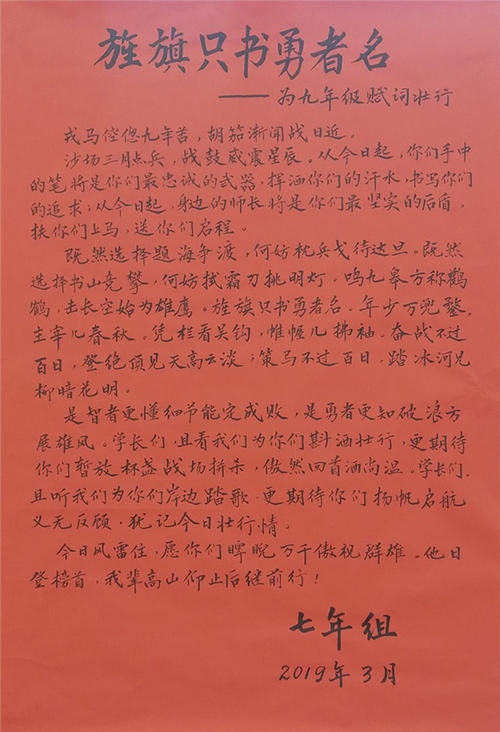 旌旗只书勇者名
——为九年级赋词壮行
戎马倥偬九年苦，胡笳渐闻战日近。
沙场三月点兵，战鼓威震星辰。从今日起，你们手中
的笔将是你们最忠诚的武器，挥洒你们的汗水，书写你们
的追求；从今日起，身边的师长将是你们最坚实的后盾，
扶你们上马，送你们启程。
既然选择题海争渡，何妨枕兵戈待达旦。既然
选择书山竞攀，何妨拭霜刀挑明灯。鸣九皋方称鹳
鹤，击长空始为雄鹰。旌旗只书勇者名，年少万兜鍪，
主宰几春秋。凭栏看吴钩，帷幄几拂袖。奋战不过
百日，登绝顶见天高云淡；策马不过百日，踏冰河见
柳暗花明。
是智者更懂细节能定成败，是勇者更知破浪方
展雄风。学长们，且看我们为你们斟酒壮行，更期待
你们暂放杯盏战场拼杀，傲然回首酒尚温。学长们，
且听我们为你们岸边踏歌，更期待你们扬帆启航
义无反顾，犹记今日壮行情。
今日风雷住，愿你们睥睨万千傲视群雄。他日
登榜首，我辈高山仰止后继前行！
七年组
2019年3月